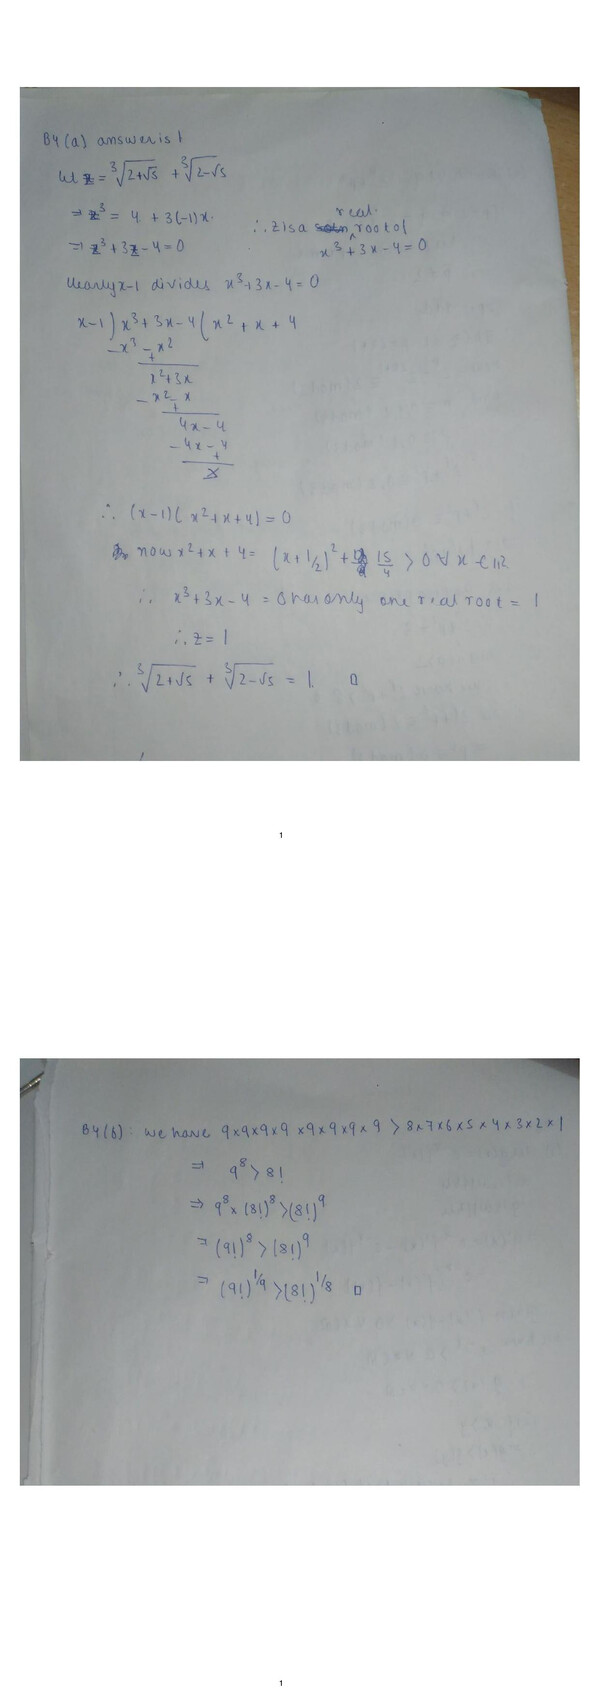 B4(a) answer is 1
let z = ∛(2+√5) + ∛(2-√5)
⇒ z³ = 4 + 3(-1)x.
⇒ z³+3z-4=0
∴ z is a real root of
x³+3x-4=0
Clearly x-1 divides x³+3x-4=0
x-1 ) x³+3x-4 ( x²+x+4
-x³ - x²
+
x²+3x
- x² - x
+
4x-4
-4x-4
+
x
∴ (x-1)(x²+x+4)=0
now x²+x+4= (x+1/2)²+ 15/4 >0 ∀ x ∈ ℝ
∴ x³+3x-4=0 has only one real root = 1
∴ z=1
∴ ∛(2+√5) + ∛(2-√5) = 1. □
1
B4(b): we have 9×9×9×9×9×9×9×9 > 8×7×6×5×4×3×2×1
⇒ 9⁸>8!
⇒ 9⁸×(8!)⁸>(8!)⁹
= (9!)⁸>(8!)⁹
= (9!)^1/9>(8!)^1/8 □
1